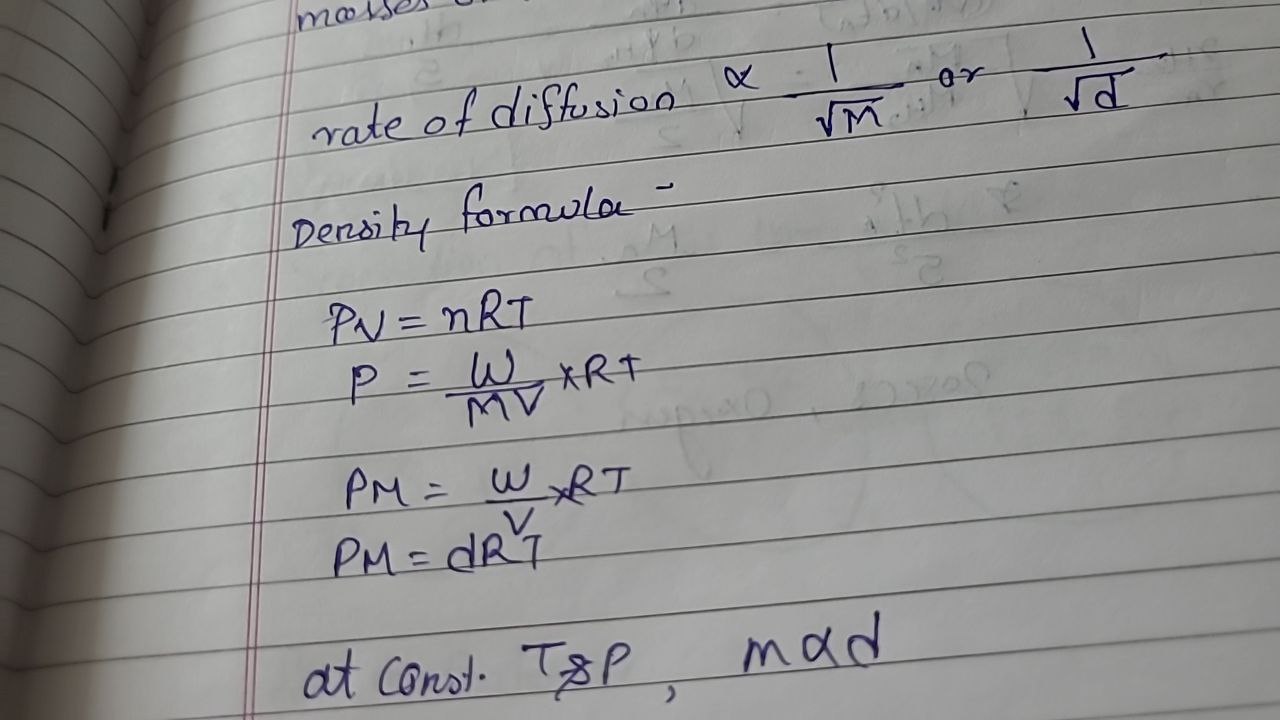 masses
rate of diffusion ∝ 1/√M or 1/√d
Density formula -
PV = nRT
P = W/MV ×RT
PM = W/V ×RT
PM = dRT
at const. T&P, m α d